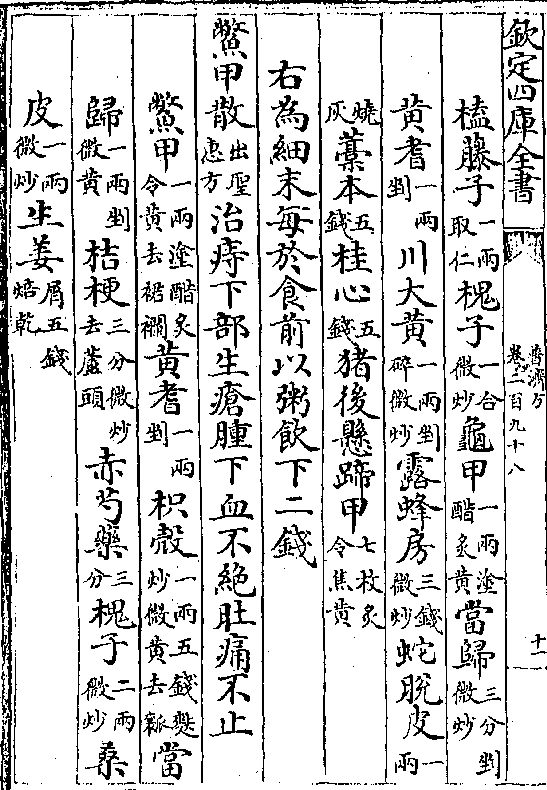 欽定四庫全書
普濟方
卷二百九十八
十一
榼藤子一兩取仁槐子一合微炒龜甲一兩塗醋炙黄當歸三分剉微炒
黄耆一兩剉川大黄一兩剉碎微炒露蜂房三錢微炒蛇脱皮一兩
燒灰藁本五錢桂心五錢猪後懸蹄甲七枚炙令焦黄
右為細末每於食前以粥飲下二錢
鱉甲散出聖惠方治痔下部生瘡腫下血不絶肚痛不止
鱉甲一兩塗醋炙令黄去裙襴黄耆一兩剉枳殻一兩五錢麩炒微黄去瓤當
歸一兩剉微黄桔梗三分微炒去蘆頭赤芍藥三分槐子二兩微炒桑
皮一兩微炒生姜屑五錢焙乾